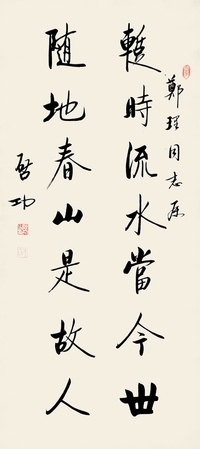 鄭同志屬
暫時流水當今世
随地春山是故人
啓功